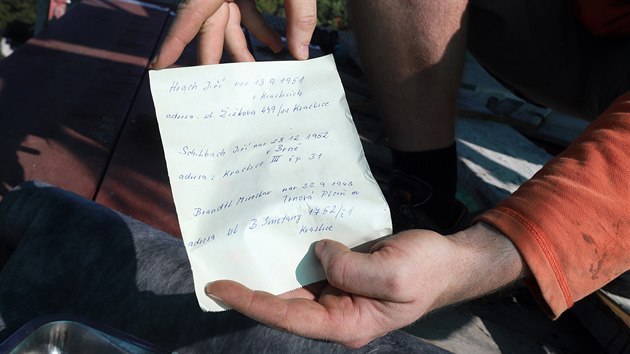 Hrach Jiří nar 13.9.1951
v Kraslicích
adresa: ul Žižkova 449/21 Kraslice
Schilbach Jiří nar 23.12.1952
v Brně
adresa: Kraslice III čp 31
Brandtl Miroslav nar 22.9.1948
Trnová Plzeň
adresa ul B. Smetany 1752/21
Kraslice